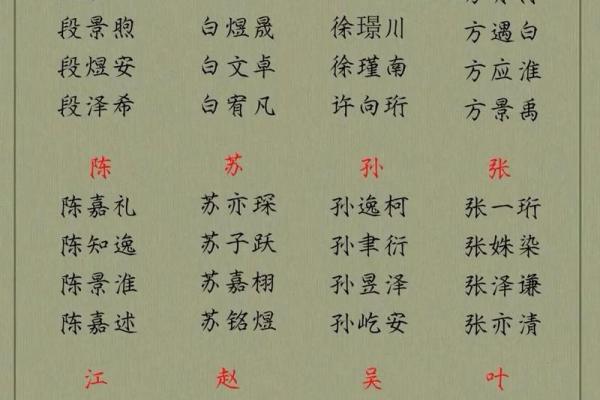 段景煦 白煜晟 徐璟川 方遇白
段煜安 白文卓 徐瑾南 方应淮
段泽希 白宥凡 许向珩 方景禹
陈 苏 孙 张
陈嘉礼 苏亦琛 孙逸柯 张一珩
陈知逸 苏子跃 孙聿衍 张姝染
陈景淮 苏嘉栩 孙昱泽 张泽谦
陈嘉述 苏铭煜 孙屹安 张亦清
江 赵 吴 叶